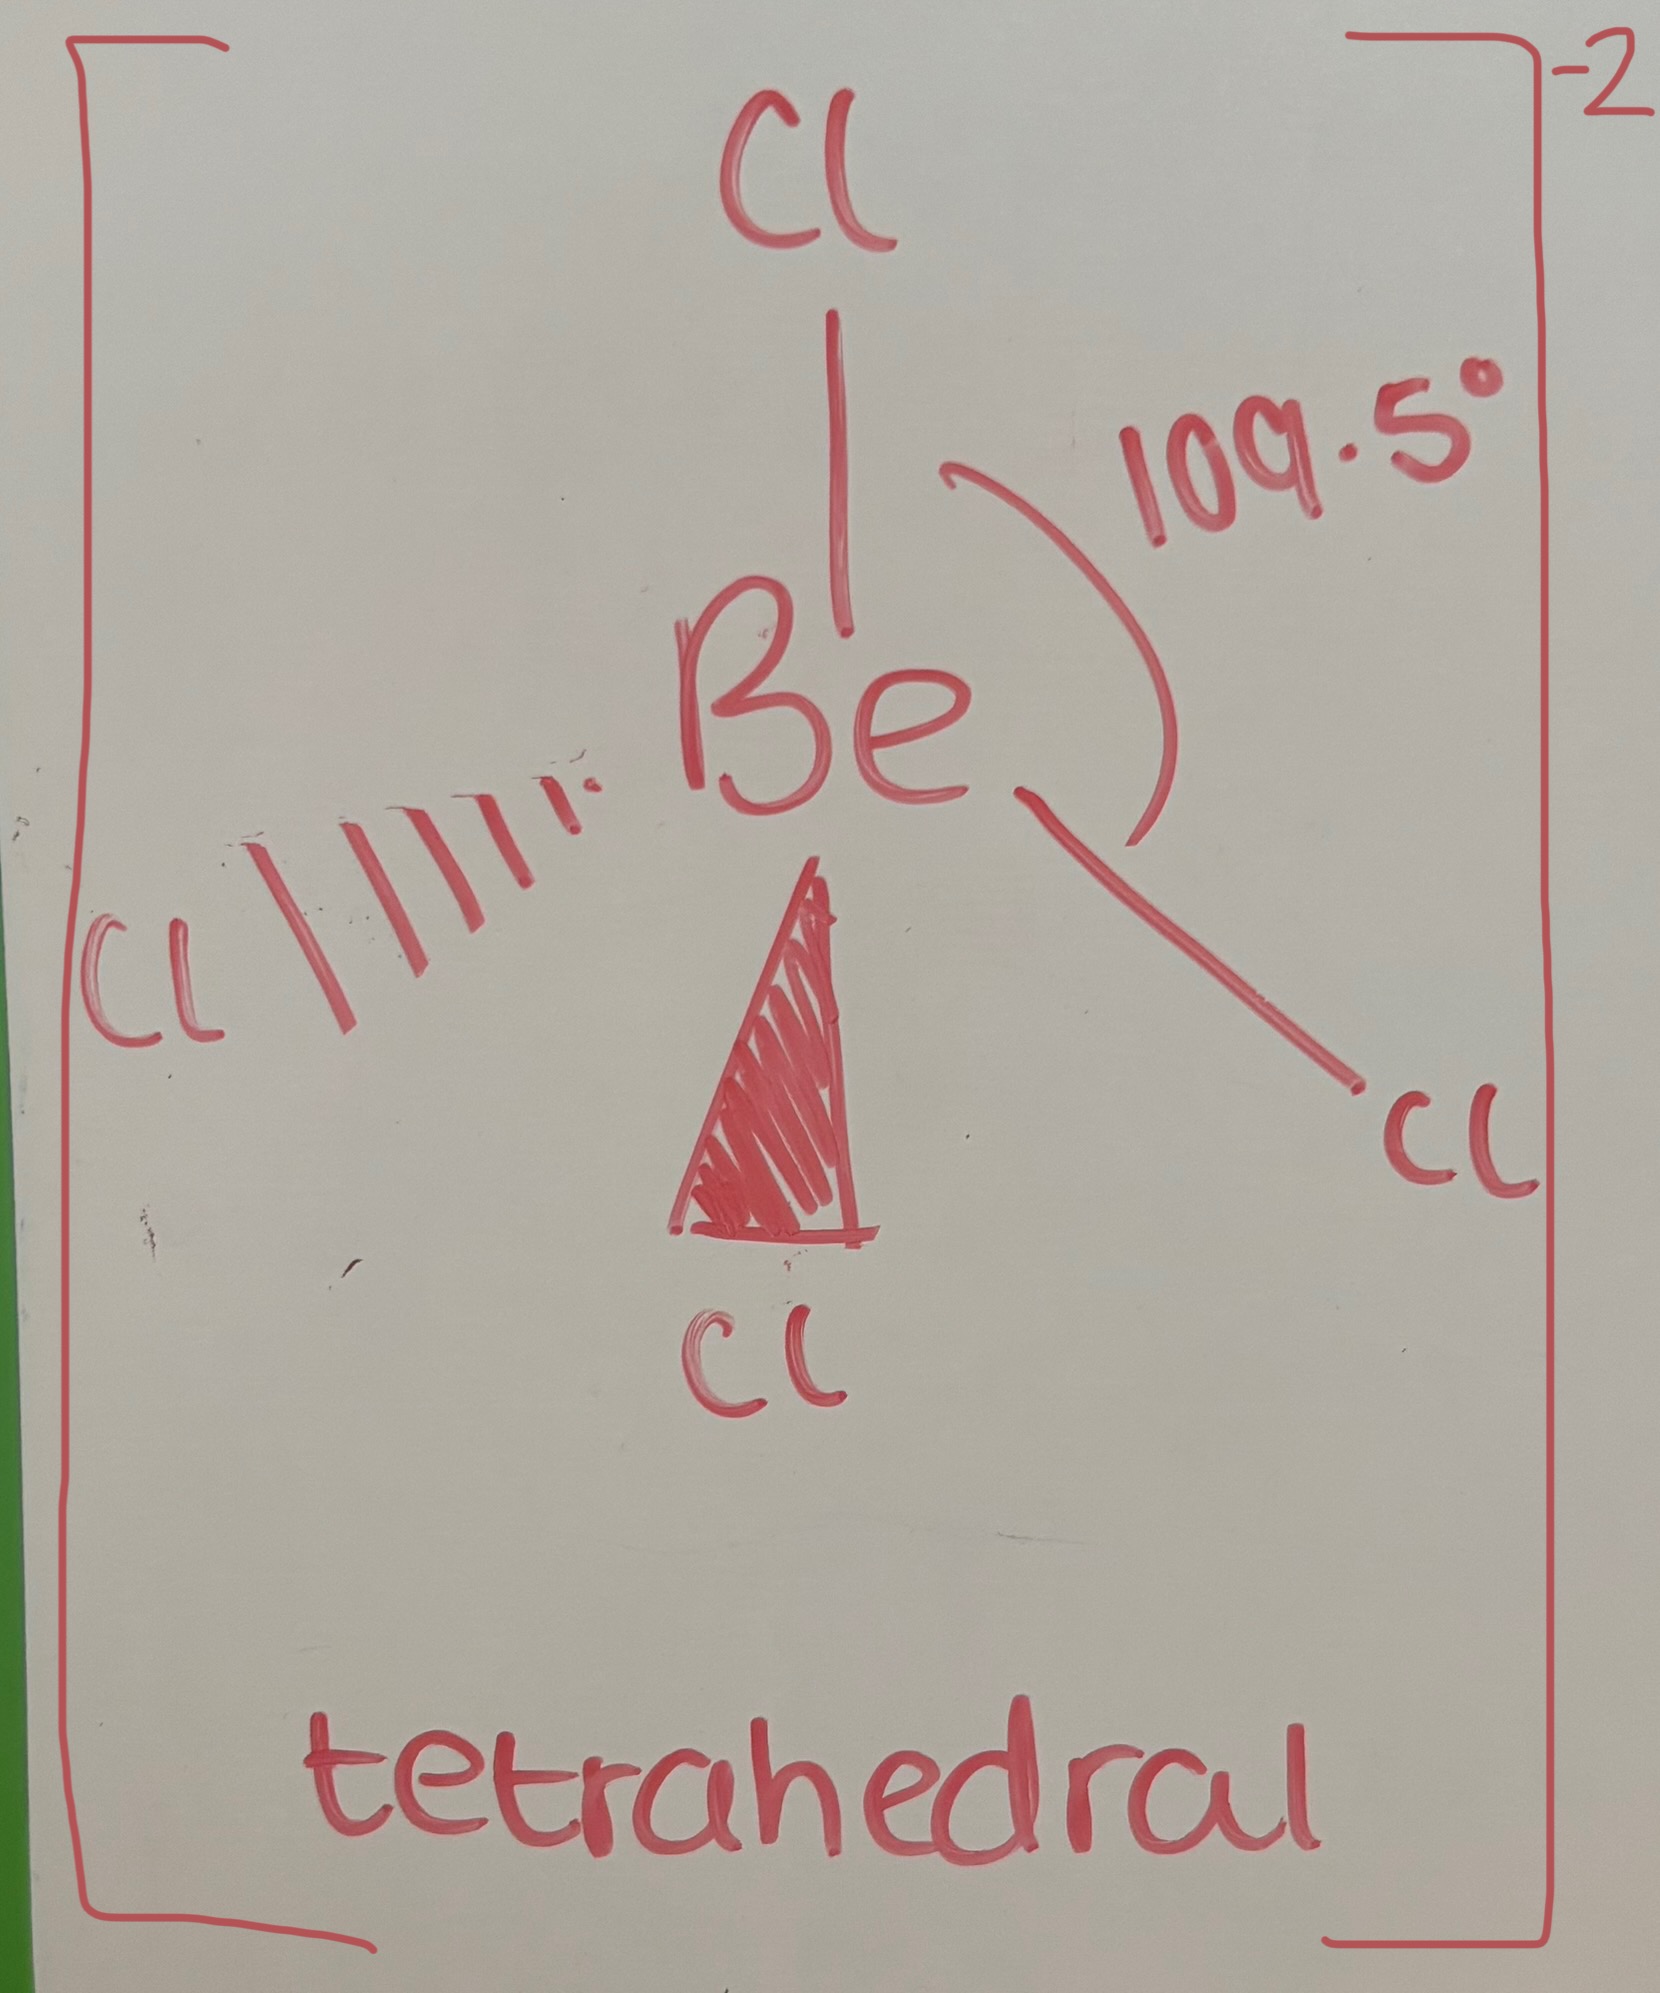 -2
Cl
109.5°
Be
Cl
Cl
Cl
tetrahedral